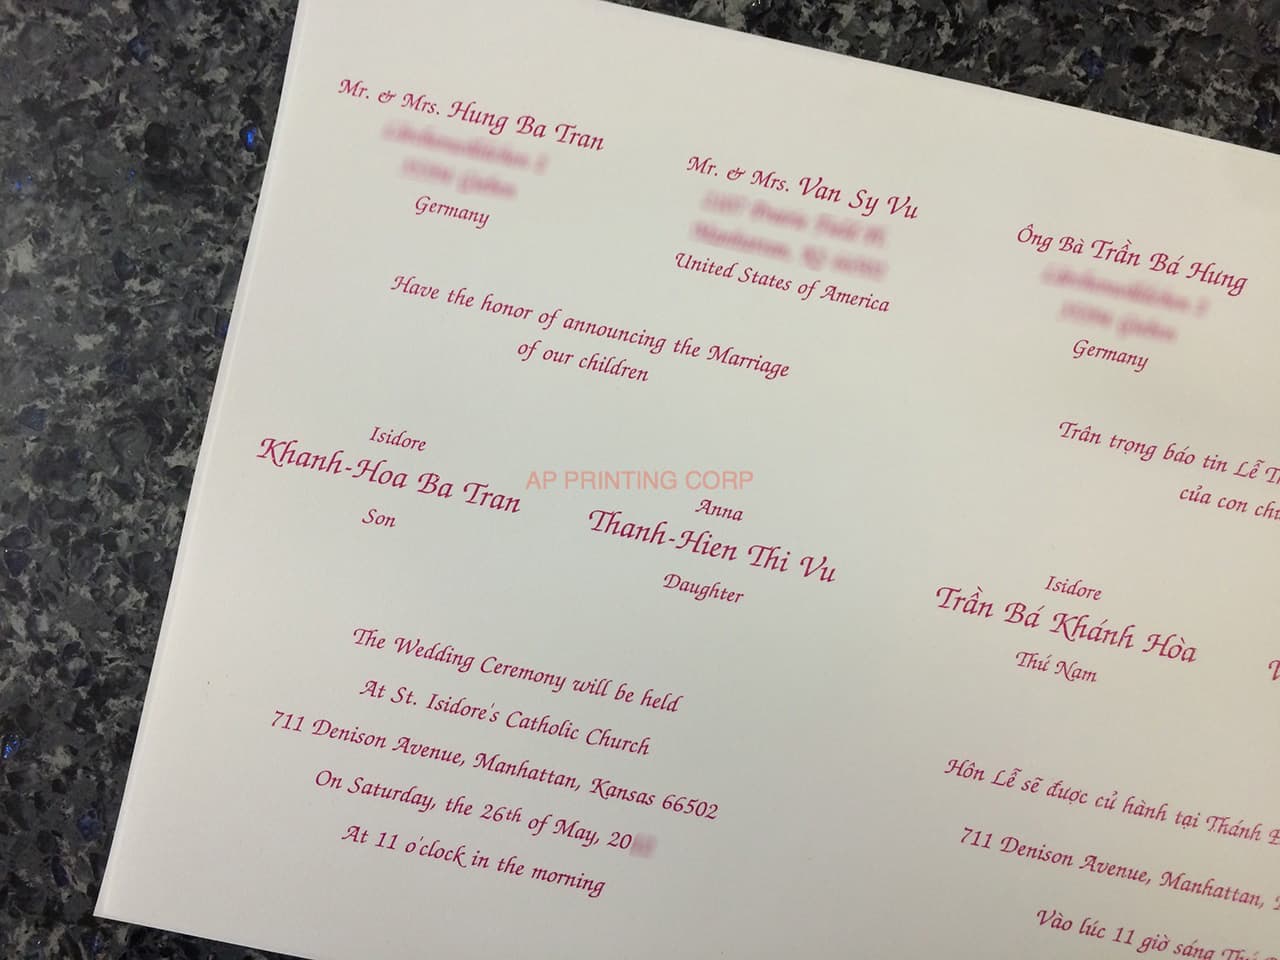 Mr. & Mrs. Hung Ba Tran
Germany
Mr. & Mrs. Van Sy Vu
United States of America
Have the honor of announcing the Marriage
of our children
Isidore
Khanh-Hoa Ba Tran
Son
Anna
Thanh-Hien Thi Vu
Daughter
The Wedding Ceremony will be held
At St. Isidore's Catholic Church
711 Denison Avenue, Manhattan, Kansas 66502
On Saturday, the 26th of May, 20
At 11 o'clock in the morning
AP PRINTING CORP
Ông Bà Trần Bá Hưng
Germany
Trân trọng báo tin Lễ
của con
Isidore
Trần Bá Khánh Hòa
Thứ Nam
Hôn Lễ sẽ được củ hành tại Thánh
711 Denison Avenue, Manhattan,
Vào lúc 11 giờ sáng